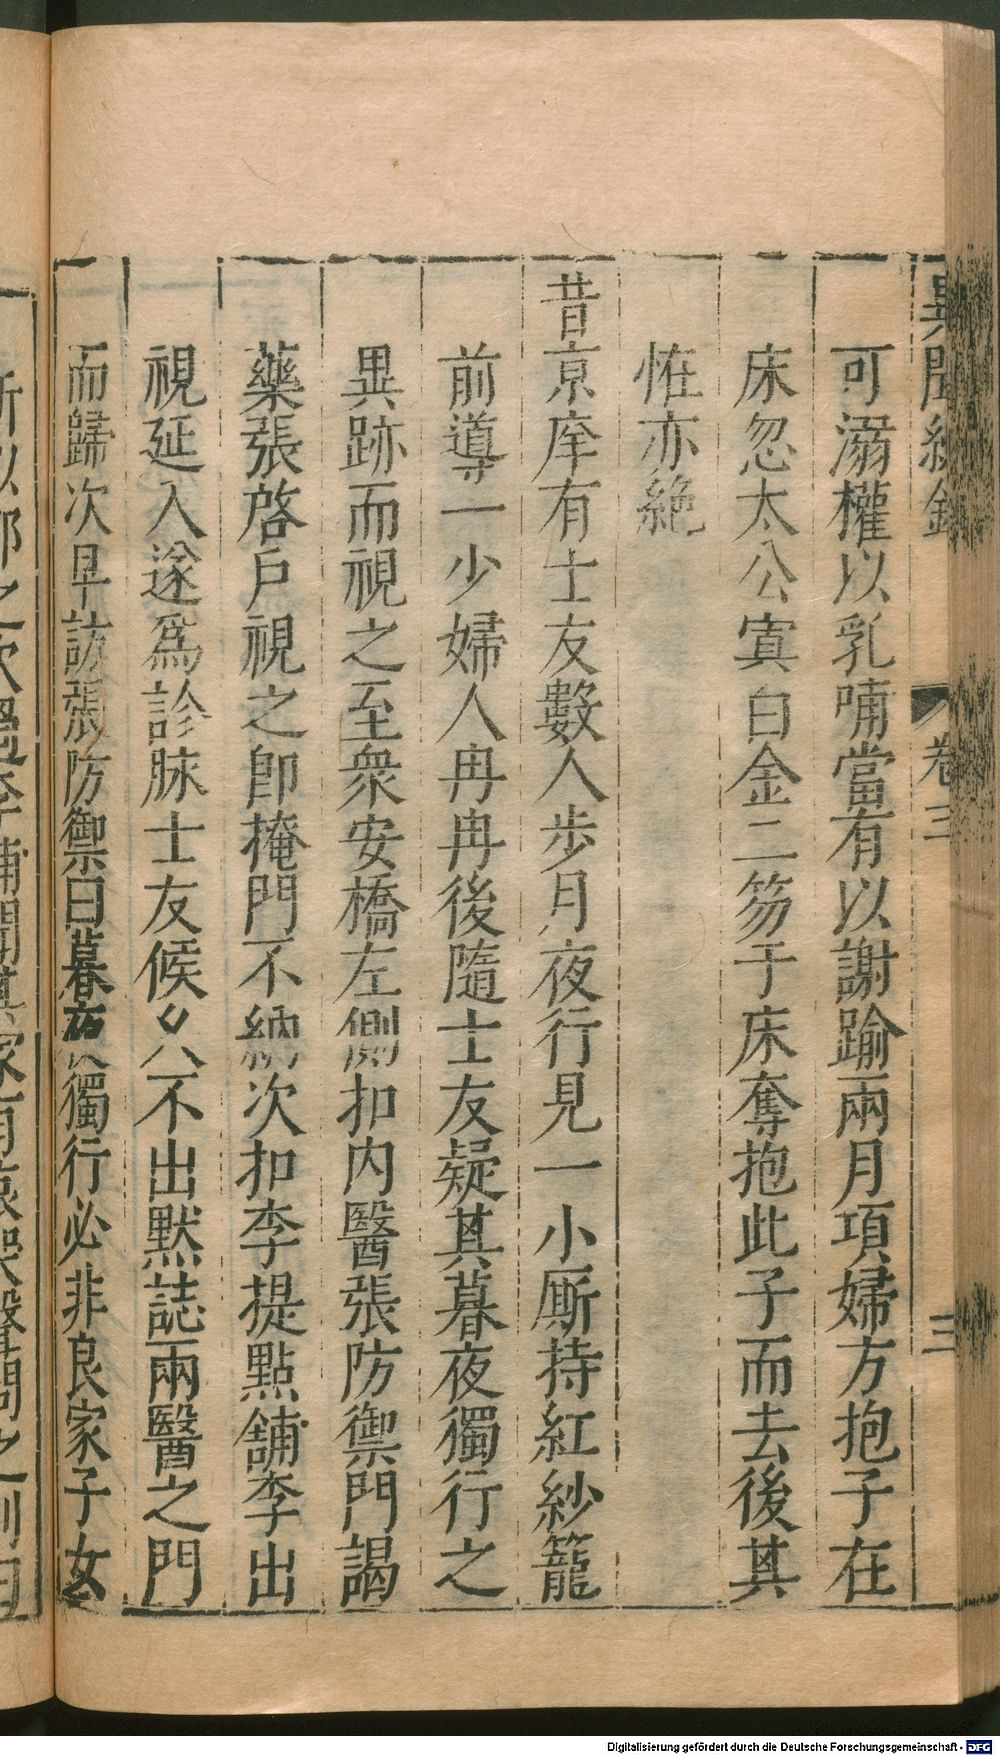 異聞總錄
卷三
三
可溺權以乳哺當有以謝踰兩月項婦方抱子在
床忽太公寘白金二笏于床奪抱此子而去後其
恠亦絶
昔京庠有士友數人步月夜行見一小厮持紅紗籠
前導一少婦人冉冉後隨士友疑其暮夜獨行之
異跡而視之至衆安橋左側扣内醫張防禦門謁
藥張啓戶視之卽掩門不納次扣李提點舖李出
視延入遂爲診脉士友候久不出默誌兩醫之門
而歸次早訪張防禦曰暮夜獨行必非良家子女
Digitalisierung gefördert durch die Deutsche Forschungsgemeinschaft - DFG